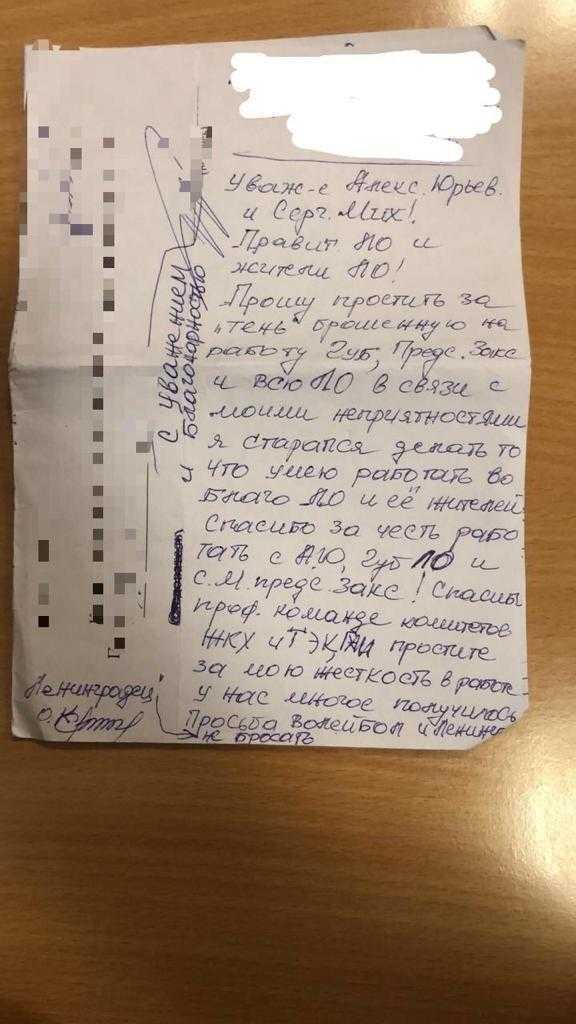 Уваж-е Алекс. Юрьев.
и Серг. Мих!
Правит. ЛО и
жители ЛО!
Прошу простить за
„тень" брошенную на
работу Губ, Предс. Закс
и всю ЛО в связи с
моими неприятностями
я старался делать то
что умею работать во
благо ЛО и её жителей
Спасибо за честь рабо
тать с А.Ю, Губ ЛО и
С.М. предс. Закс! Спасибо
проф. команде комитетов
ЖКХ и ТЭК, простите
за мою жесткость в работе
у нас многое получилось
Просьба волейбол и
не бросать
с уважением
и Благодарностью
Ленинградец